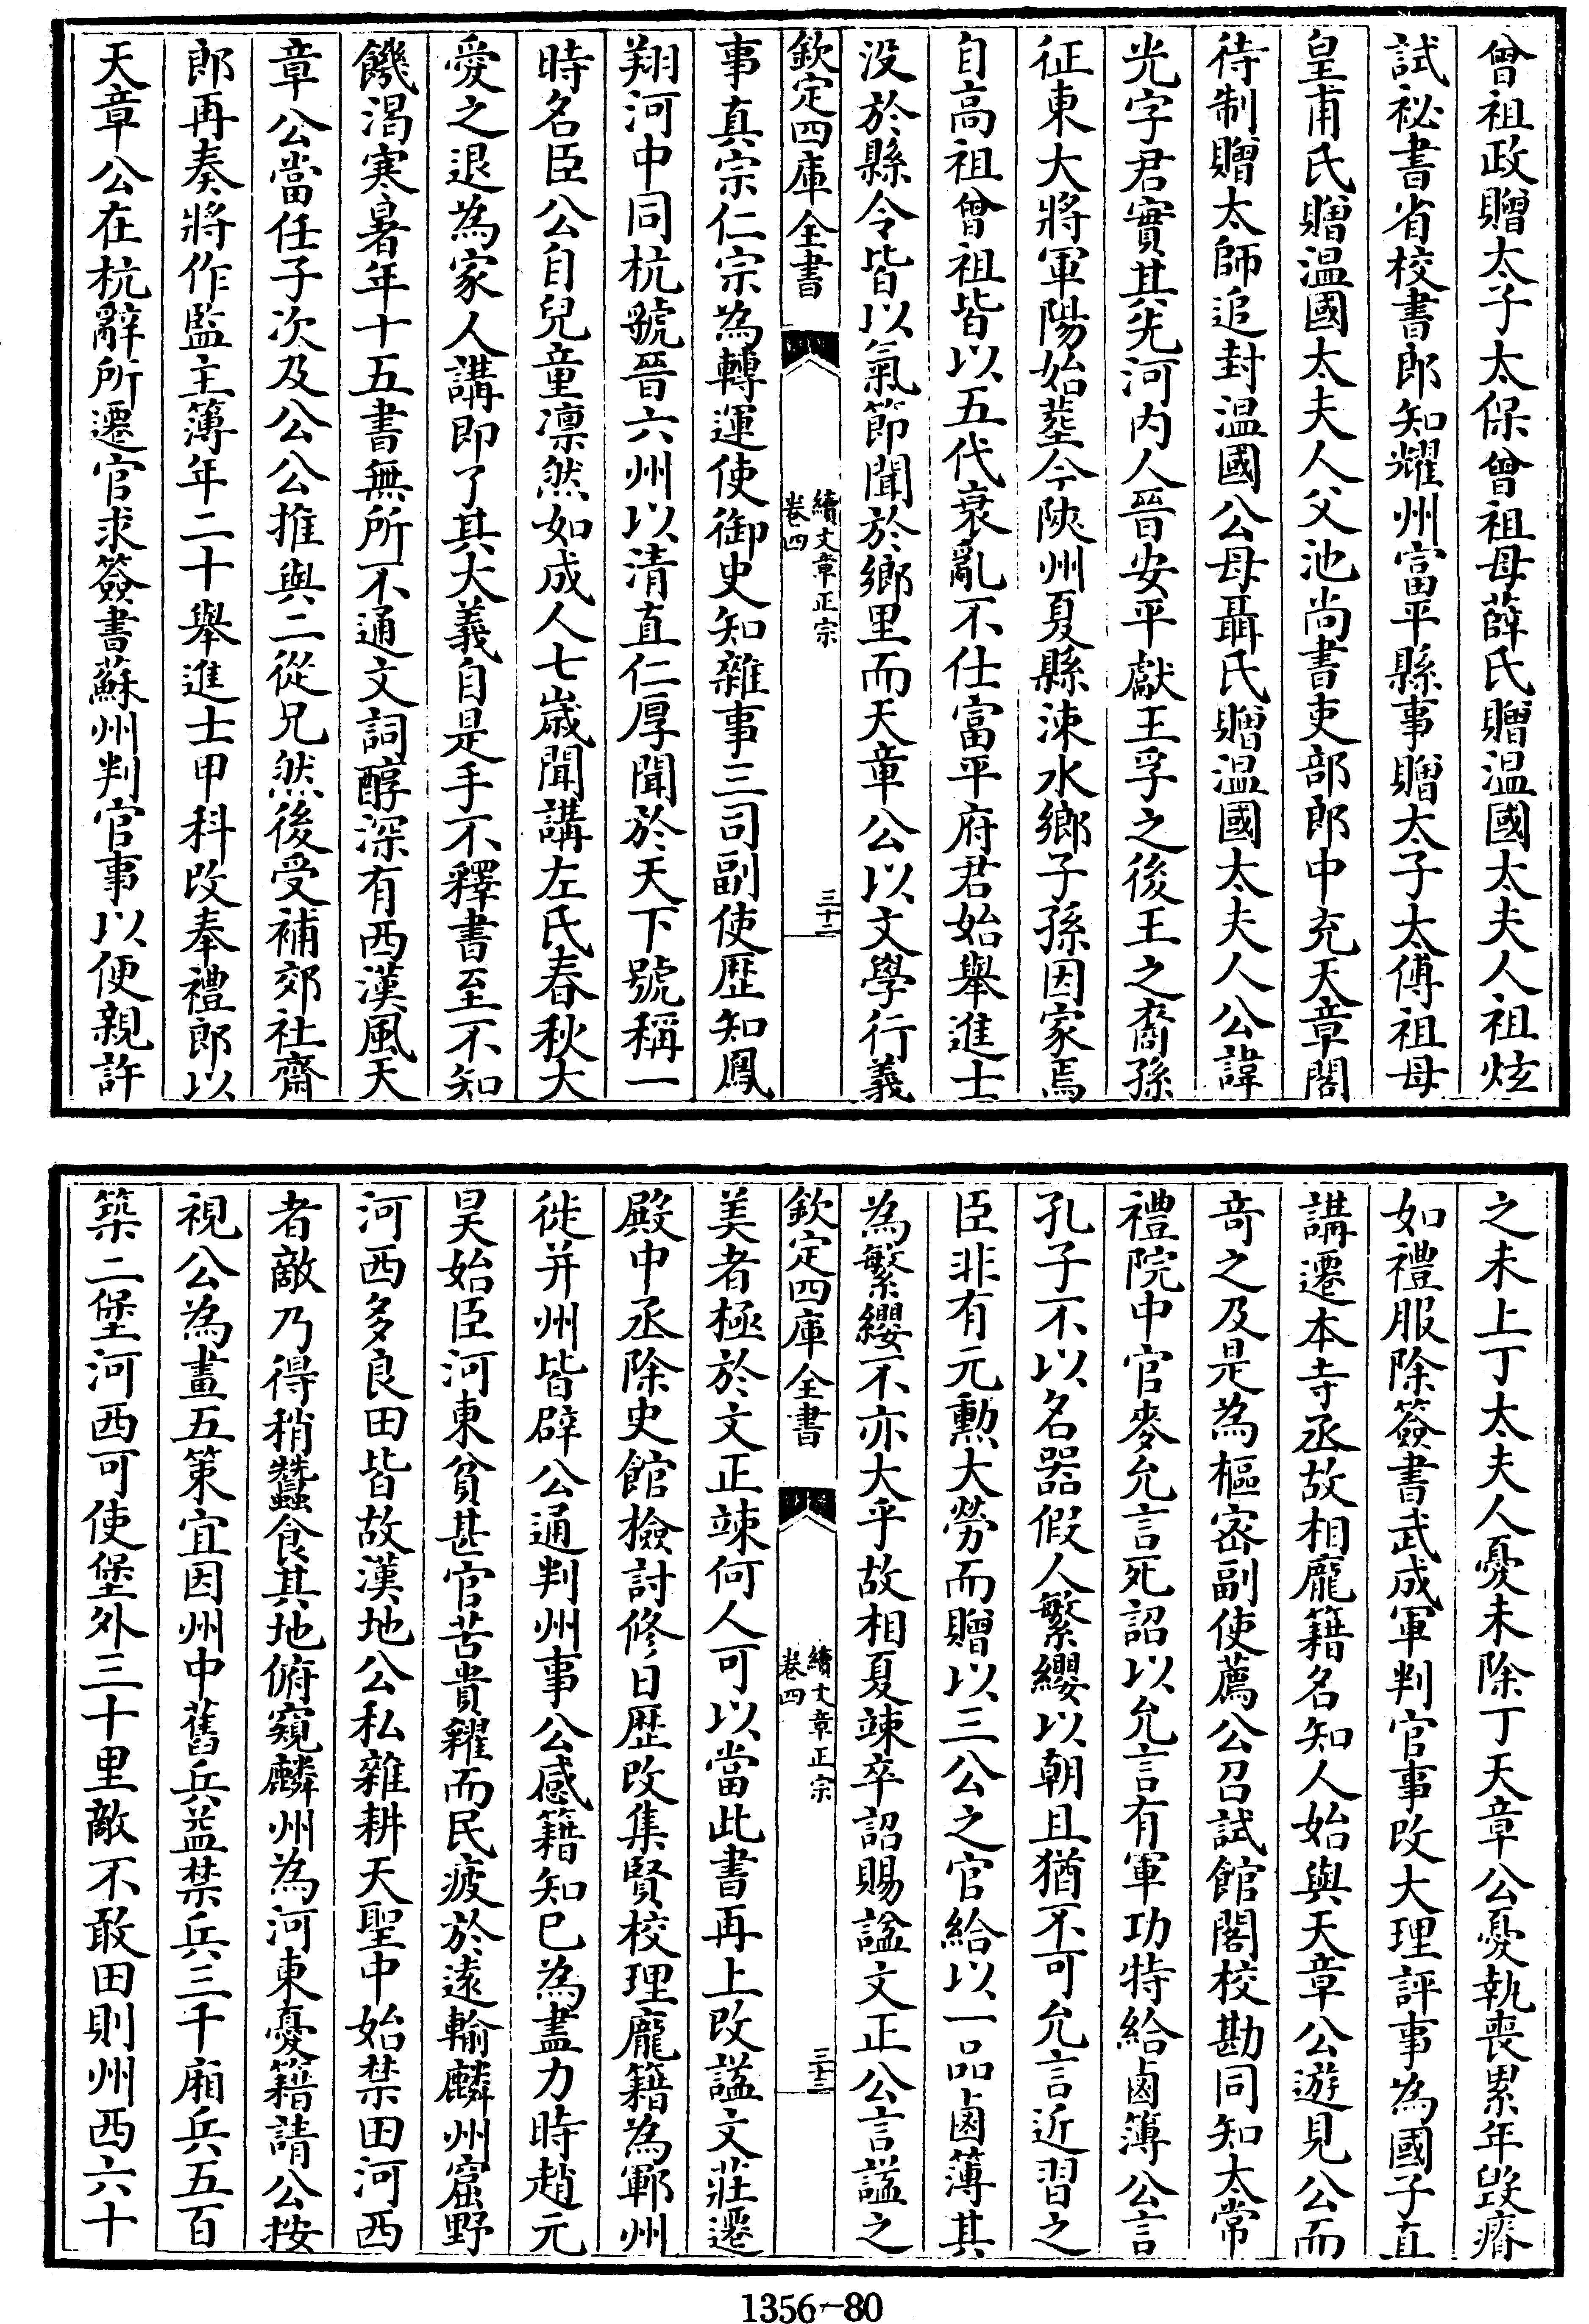 曾祖政贈太子太保曾祖母薛氏贈温國太夫人祖炫
試祕書省校書郎知耀州富平縣事贈太子太傅祖母
皇甫氏贈温國太夫人父池尚書吏部郎中充天章閣
待制贈太師追封温國公母聶氏贈温國太夫人公諱
光字君實其先河内人晉安平獻王孚之後王之裔孫
征東大將軍陽始塟今陜州夏縣涑水鄉子孫因家焉
自高祖曾祖皆以五代衰亂不仕富平府君始舉進士
没於縣令皆以氣節聞於鄉里而天章公以文學行義
欽定四庫全書
續文章正宗
卷四
三十二
事真宗仁宗為轉運使御史知雜事三司副使歴知鳳
翔河中同杭虢晉六州以清直仁厚聞於天下號稱一
時名臣公自兒童凛然如成人七歲聞講左氏春秋大
愛之退為家人講即了其大義自是手不釋書至不知
饑渇寒暑年十五書無所不通文詞醇深有西漢風天
章公當任子次及公公推與二從兄然後受補郊社齋
郎再奏將作監主簿年二十舉進士甲科改奉禮郎以
天章公在杭辭所遷官求簽書蘇州判官事以便親許
之未上丁太夫人憂未除丁天章公憂執喪累年毁瘠
如禮服除簽書武成軍判官事改大理評事為國子直
講遷本寺丞故相龎籍名知人始與天章公遊見公而
竒之及是為樞宻副使薦公召試館閣校勘同知太常
禮院中官麥允言死詔以允言有軍功特給鹵簿公言
孔子不以名器假人繁纓以朝且猶不可允言近習之
臣非有元勲大勞而贈以三公之官給以一品鹵簿其
為繁纓不亦大乎故相夏竦卒詔賜諡文正公言諡之
欽定四庫全書
續文章正宗
卷四
三十三
美者極於文正竦何人可以當此書再上改諡文莊遷
殿中丞除史館檢討修日歴改集賢校理龎籍為鄆州
徙并州皆辟公通判州事公感籍知己為盡力時趙元
昊始臣河東貧甚官苦貴糴而民疲於逺輸麟州窟野
河西多良田皆故漢地公私雜耕天聖中始禁田河西
者敵乃得稍蠶食其地俯窺麟州為河東憂籍請公按
視公為畫五策宜因州中舊兵益禁兵三千廂兵五百
築二堡河西可使堡外三十里敵不敢田則州西六十
1356-80